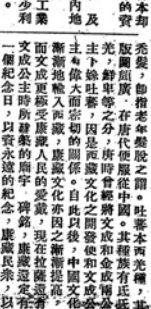 本卻
的資
及
內地
工業
少利
禿髮,即指老年髮脫之謂。吐蕃本西羌種,其
版圖頗廣,在唐代便服從中國。其種族有氐
羌,鮮卑等之分,唐時曾經將文成和金成兩公
主下嫁吐蕃,因是西藏文化之開發便和文成公
主有偉大而密切的關係。自此以後,中國文化
漸漸地輸入西藏,康藏文化亦因之漸漸提高,
而文成更極受康藏人民的愛戴,現在拉薩還有
文成公主時所建築的廟宇,碑銘,康藏還定有
一個紀念日,以資永遠的紀念,康藏民衆,以